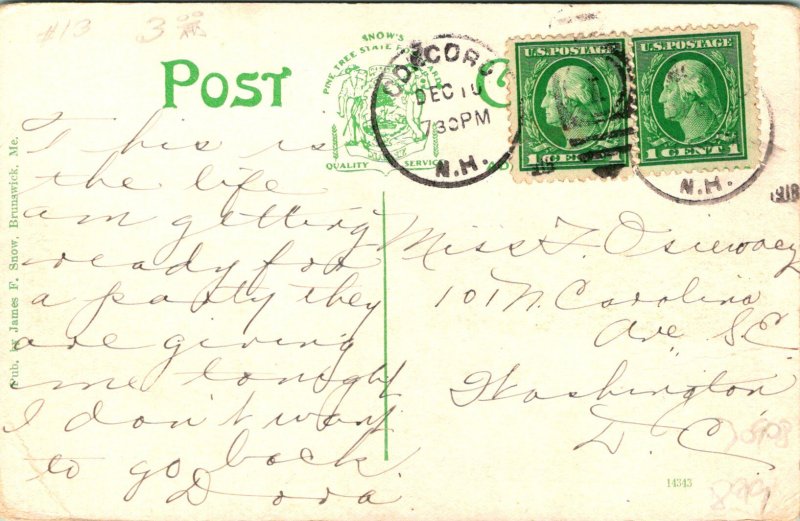 #13
3
POST
SNOW'S
PINE TREE STATE
QUALITY SERVICE
CONCORD
DEC 10
730PM
N.H.
U.S. POSTAGE
1 CENT 1
U.S. POSTAGE
1 CENT 1
N.H.
1918
Pub. by James F. Snow, Brunswick, Me.
This is
the life
am getting
ready for
a party they
are giving
me tonight
I don't want
to go back
Dora
Miss F.
101 N. Carolina
Ave SE
Washington
D.C.
14343